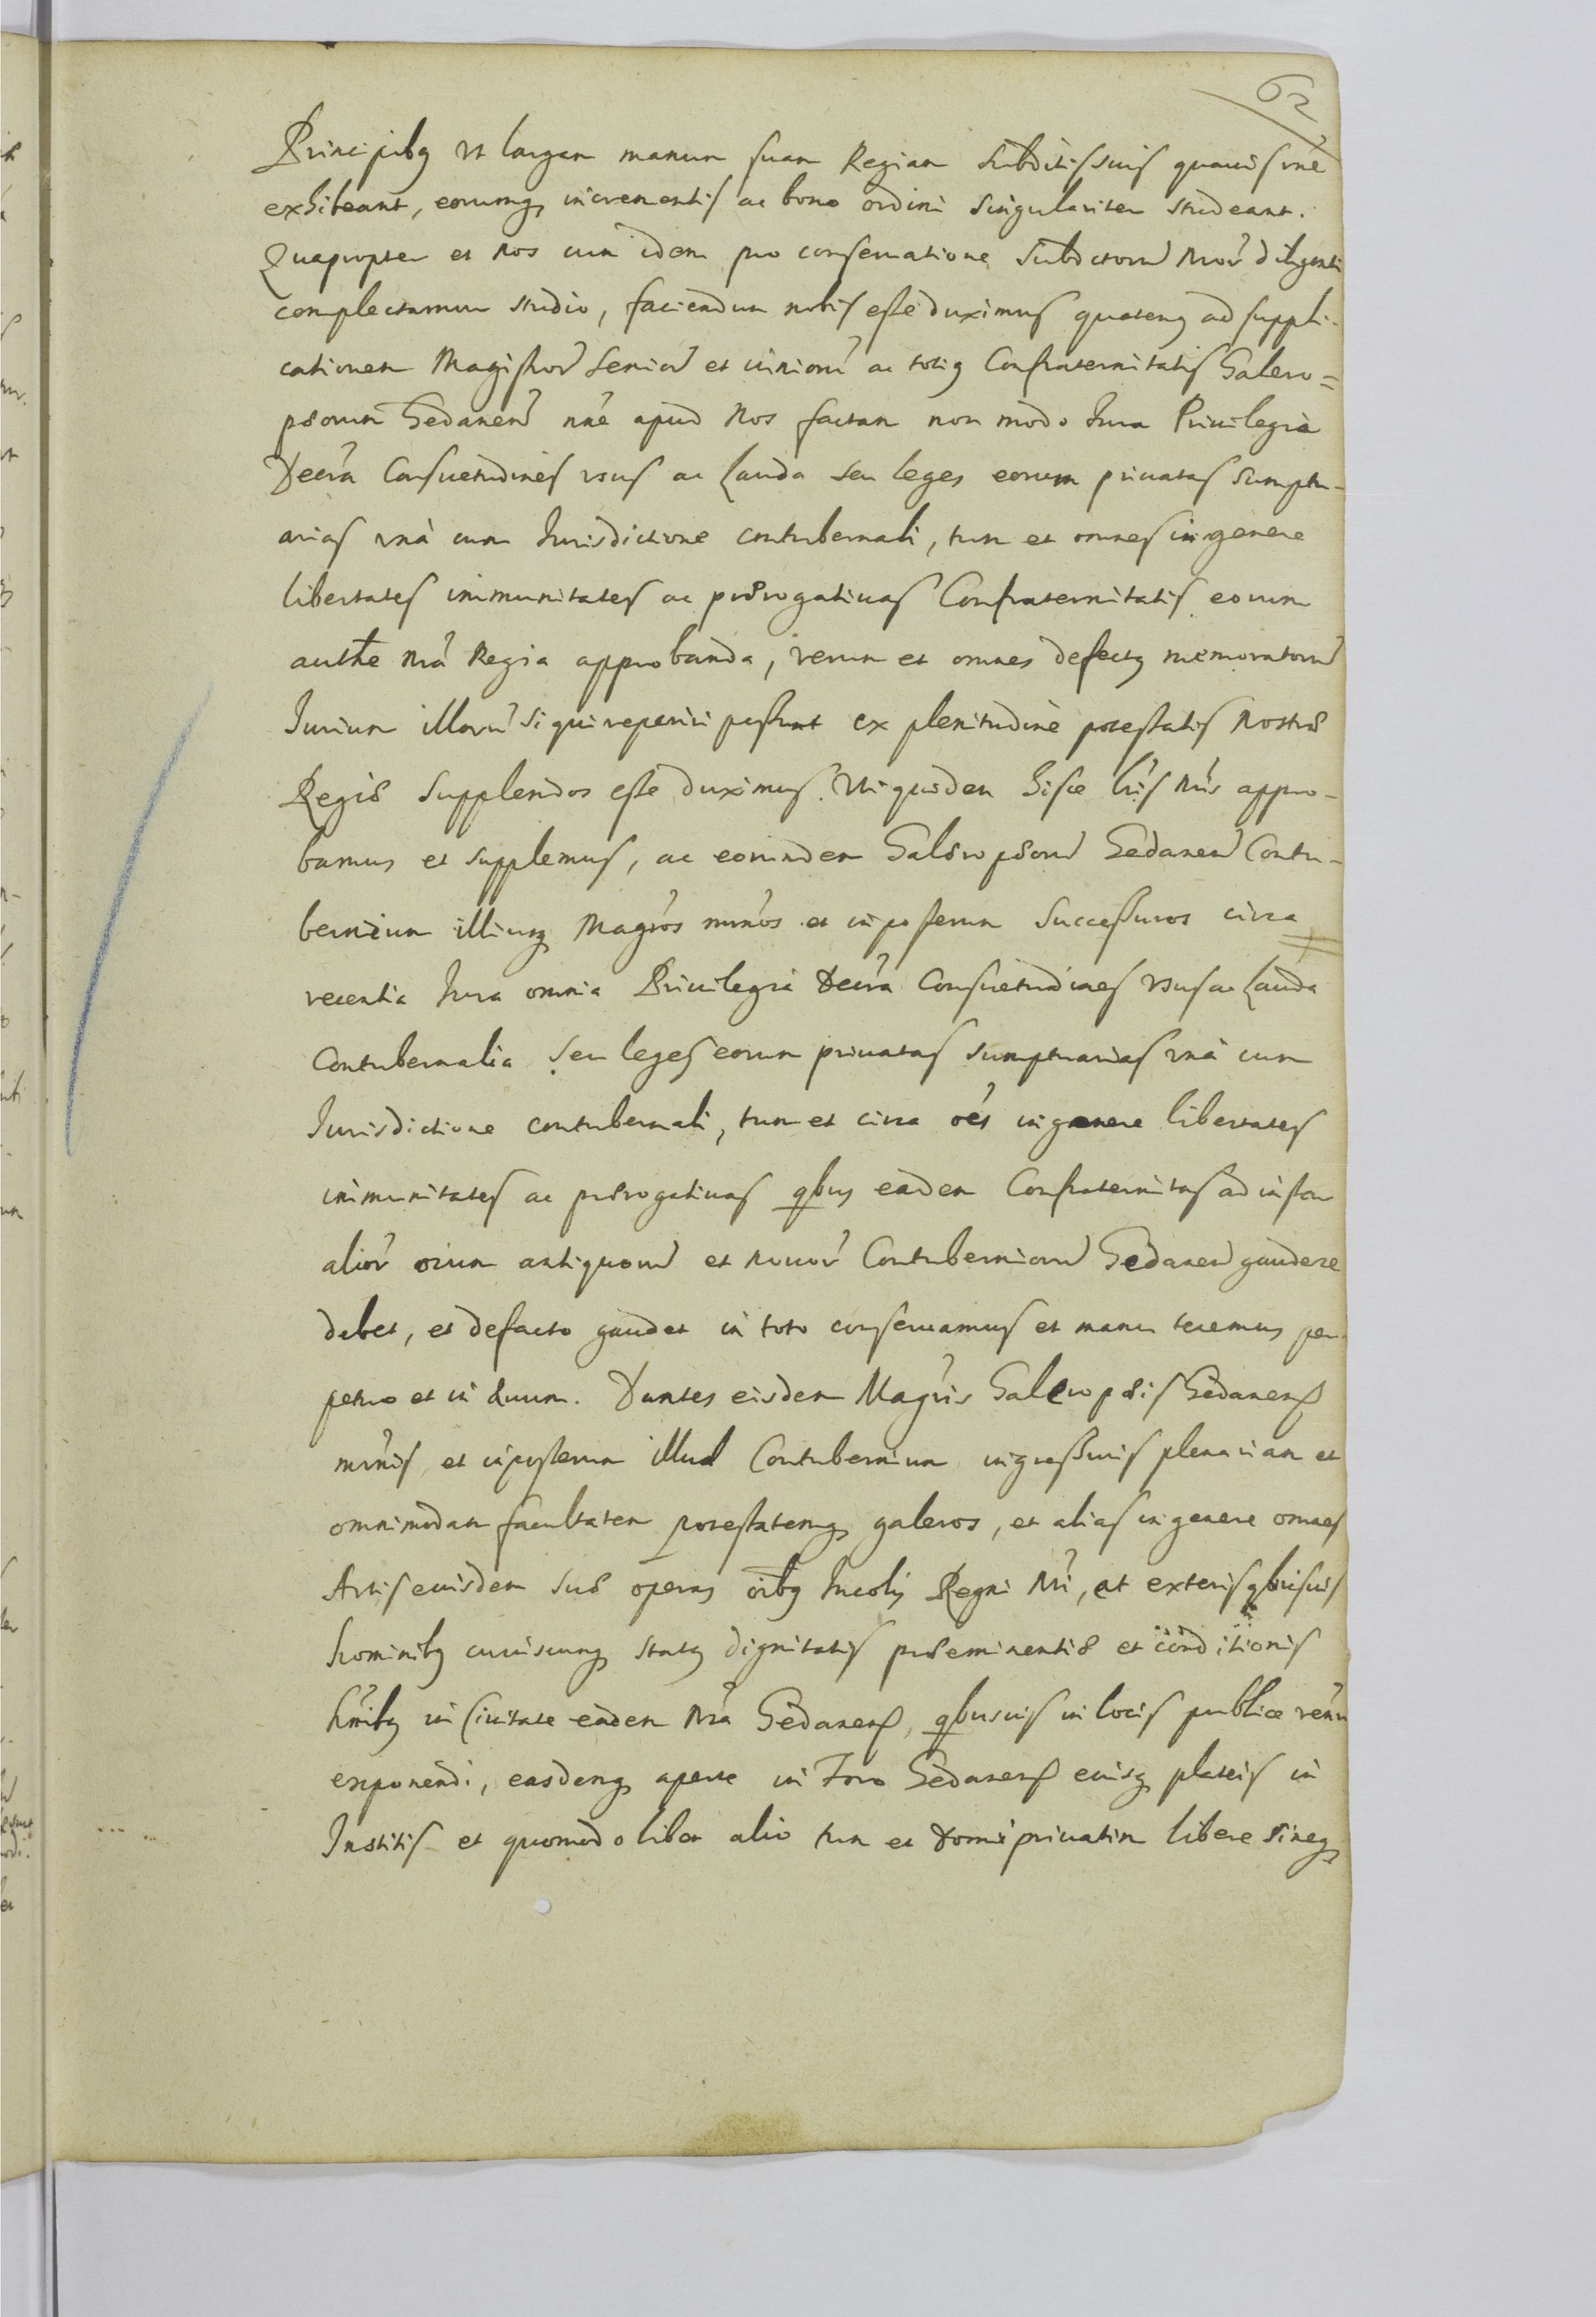 62
Principibq vt largam manum suam Regiam Subditis suis quauis rnè
exhibeant, eorumq incrementis ac bono ordini Singulariter studeant.
Quapropter et Nos cum idem pro conseruatione Subditorũ Nror̃ diligenti
complectamur studio, faciendum nobis esse duximus quatenq ad suppli-
cationem Magistrorũ Seniorũ et iuniorũ ac totiq Confraternitatis Galero=
pæorum Gedanen̄ nrẽ apud Nos factam non modo Iura Priuilegia
Decrã Consuetudines vsus ac Lauda seu leges eorum priuatas Sumptu-
arias vnà cum Iurisdictione contubernali, tum et omnes in genere
libertates immunitates ac prærogatiuas Confraternitatis eorum
authẽ Nrã Regia approbanda, verum et omnes defectq memoratorũ
Iurium illorũ Si qui reperiri possunt ex plenitudine potestatis Nostræ
Regiæ Supplendos esse duximus. Vti quidem hisce lrĩs Nrĩs appro-
bamus et supplemus, ac eorundem Galeropæorũ Gedanen̄ Contu-
bernium illiusq Magrõs mrnõs et in posterum Successuros circa
recentia Iura omnia Priuilegia Decrã Consuetudines Vsus ac Lauda
Contubernalia Seu leges eorum priuatas sumptuarias vnà cum
Iurisdictione contubernali, tum et circa oẽs in genere libertates
immunitates ac prærogatiuas qbus eadem Confraternitas ad instar
alior̃ oium antiquorũ et nouor̃ Contuberniorũ Gedanen̄ gaudere
debet, et defacto gaudet in toto conseruamus et manu tenemus per
petuo et in æuum. Dantes eisdem Magrĩs Galeropæis Gedanens
mrnĩs et inposterum illud Contubernium ingressuris plenariam et
omnimodam facultatem potestatemq galeros, et alias in genere omnes
Artis eiusdem Suæ operas oĩbq Incolis Regni Nrĩ, et exteris qbusuis
hominibq cuiuscunq statq dignitatis præeminentiæ et conditionis
in Ciuitate eadem Nrã Gedanens, qbusuis in locis publice
exponendi, easdemq aperte in Foro Gedanens eiusq plateis in
Institis et quomodolibet alio tum et Domi priuatim libere Sineq